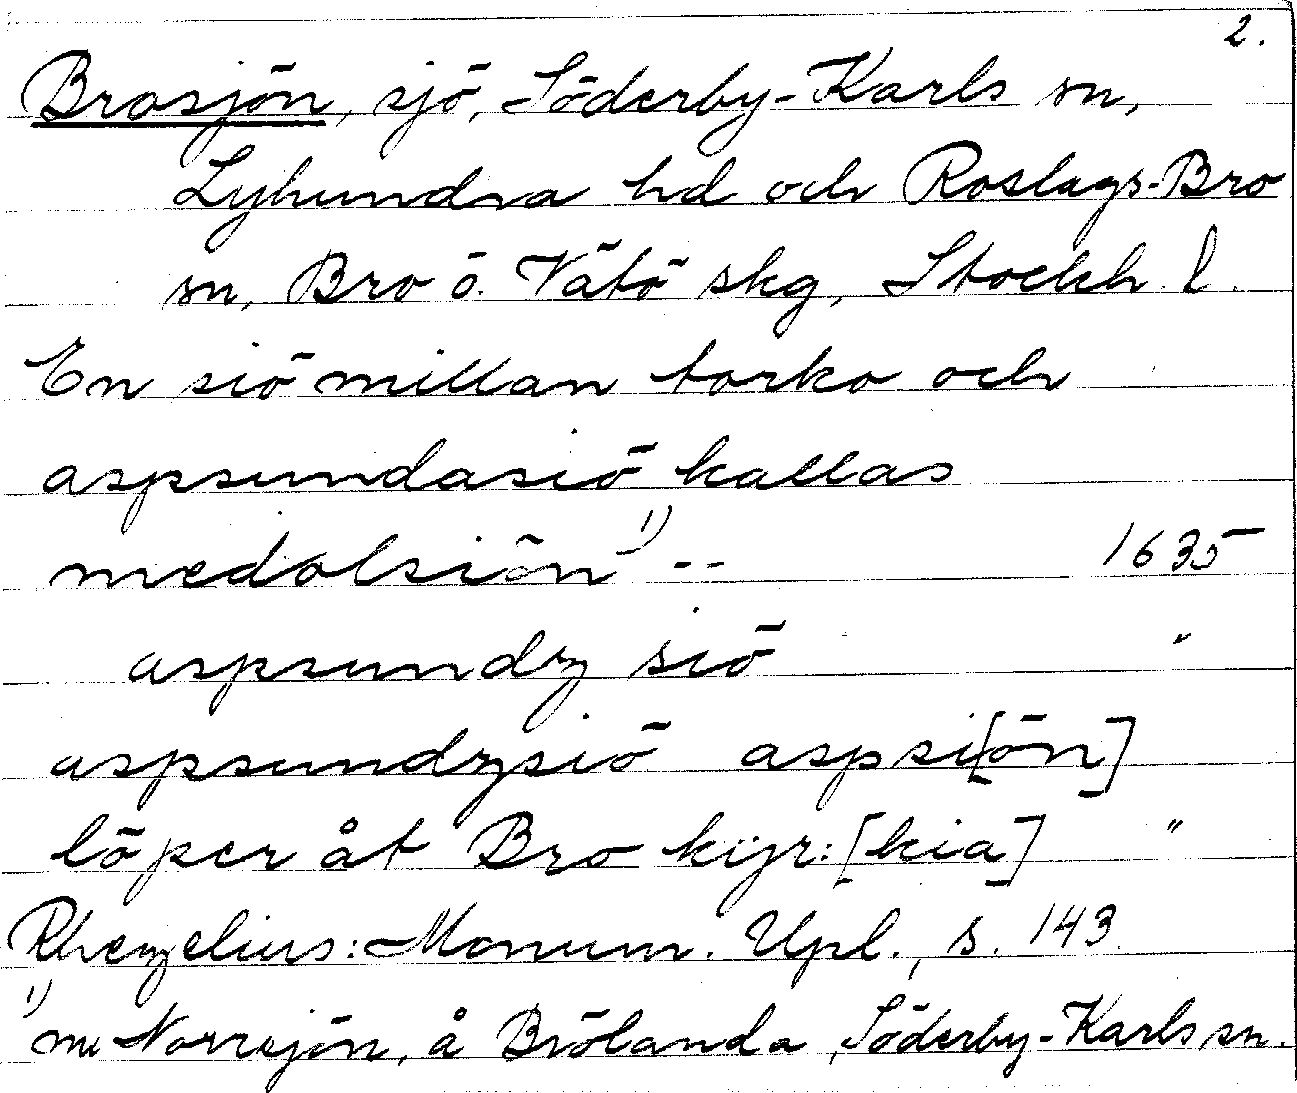 2.
Brosjön, sjö, Söderby-Karls sn,
Lyhundra hd och Roslags-Bro
sn, Bro o. Vätö skg, Stockh. l.
En siö millan torko och
aspsundasiö kallas
medolsiön 1) -- 1635
aspsundz siö "
aspsundzsiö aspsi[ön]
löper åt Bro kijr:[kia] "
Rhezelius: Monum. Upl., s. 143
1) nu Norrsjön, å Brölanda, Söderby-Karls sn.